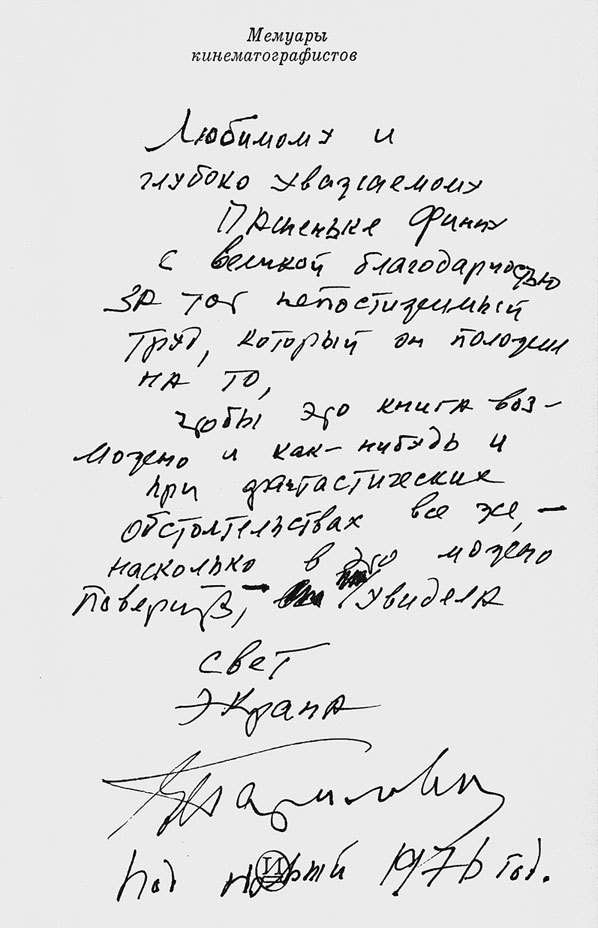 Мемуары
кинематографистов
Любимому и
глубоко уважаемому
Пашеньке Финну
с великой благодарностью
за тот непостижимый
труд, который он положил
на то,
чтобы эта книга воз-
можно и как-нибудь и
при фантастических
обстоятельствах все же, —
насколько в это можно
поверить, — увидела
свет
экрана
Габрилович
Под новый 1976 год.